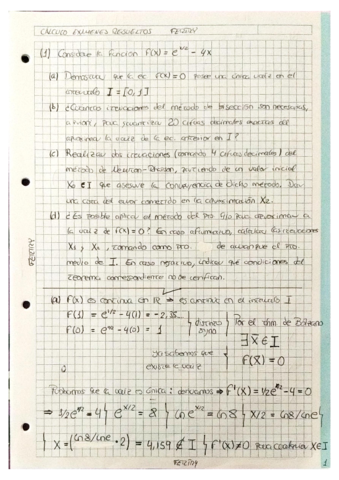 CALCULO EXAMENES RESUELTOS FEETINY
(1) Considere la función f(x) = e^{x/2} - 4x
(a) Demostrar que la ec. f(x)=0 posee una única raíz en el
intervalo I = [0,1]
(b) ¿Cuántas iteraciones del método de bisección son necesarias,
a priori, para garantizar 20 cifras decimales exactas al
aproximar la raíz de la ec. anterior en I?
(c) Realizar dos iteraciones (tomando 4 cifras decimales) del
método de Newton-Raphson, partiendo de un valor inicial
X0 ∈ I que asegure la convergencia de dicho método. Dar
una cota del error cometido en la aproximación X2.
(d) ¿Es posible aplicar el método del pto fijo para aproximar a
la raíz de f(x)=0? En caso afirmativo, calcular las iteraciones
X1 y X2, tomando como pto. de arranque el pto.
medio de I. En caso negativo, indicar que condiciones del
teorema correspondiente no se verifican.
FEETINY
(a) f(x) es continua en ℝ ⇒ es continua en el intervalo I
f(1) = e^{1/2} - 4(1) = -2,35...
f(0) = e^{0/2} - 4(0) = 1
} distinto signo } Por el thm de Bolzano
∃ x̄ ∈ I
f(x̄) = 0
ya sabemos que
existe la raíz
Probemos que la raíz es única: derivamos ⇒ f'(x) = 1/2e^{x/2} - 4 = 0
⇒ 1/2e^{x/2} = 4 } e^{x/2} = 8 } ln e^{x/2} = ln 8 } x/2 = ln8/lne }
} x = (ln8/lne · 2) = 4,159 ∉ I } f'(x) ≠ 0 para cualquier x∈I
FEETINY 1